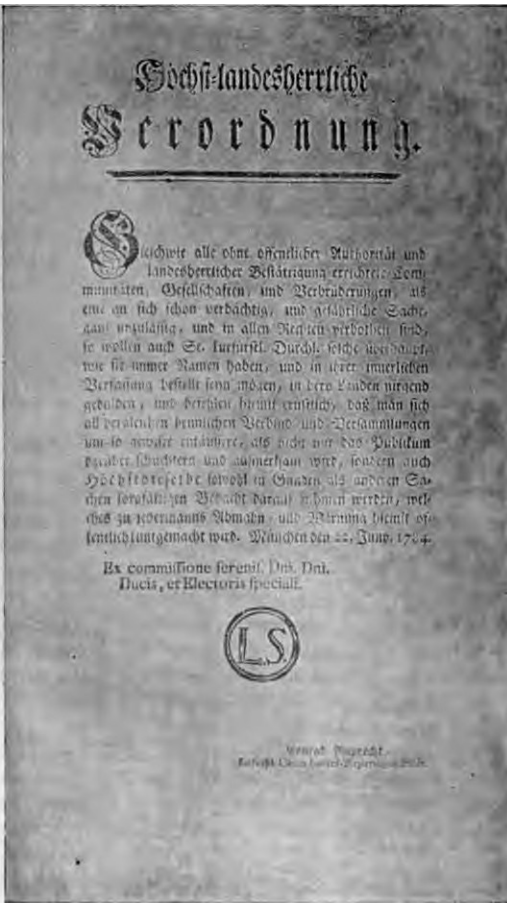 Höchst-landesherrliche
Verordnung.
Gleichwie alle ohne öffentlicher Authorität und
landesherrlicher Bestättigung errichtete Com-
munitäten, Gesellschaften, und Verbrüderungen, als
eine an sich schon verdächtig, und gefährliche Sache,
ganz unzuläßig, und in allen Rechten verbothen sind,
so wollen auch Se. kurfürstl. Durchl. solche überhaupt,
wie sie immer Namen haben, und in ihrer innerlichen
Verfassung bestellt seyn mögen, in dero Landen nirgend
gedulden, und befehlen hiemit ernstlich, daß man sich
all derley heimlichen Verbind- und Versammlungen
um so gewisser entäussere, als nicht nur das Publikum
darüber schüchtern und aufmerksam wird, sondern auch
Höchstdieselbe sowohl in Gnaden als anderen Sa-
chen sorgfältigen Bedacht darauf nehmen werden, wel-
ches zu jedermanns Abmahn- und Warnung hiemit öf-
fentlich kuntgemacht wird. München den 22. Juny. 1784.
Ex commissione serenis. Dni. Dni.
Ducis, et Electoris speciali.
L.S.